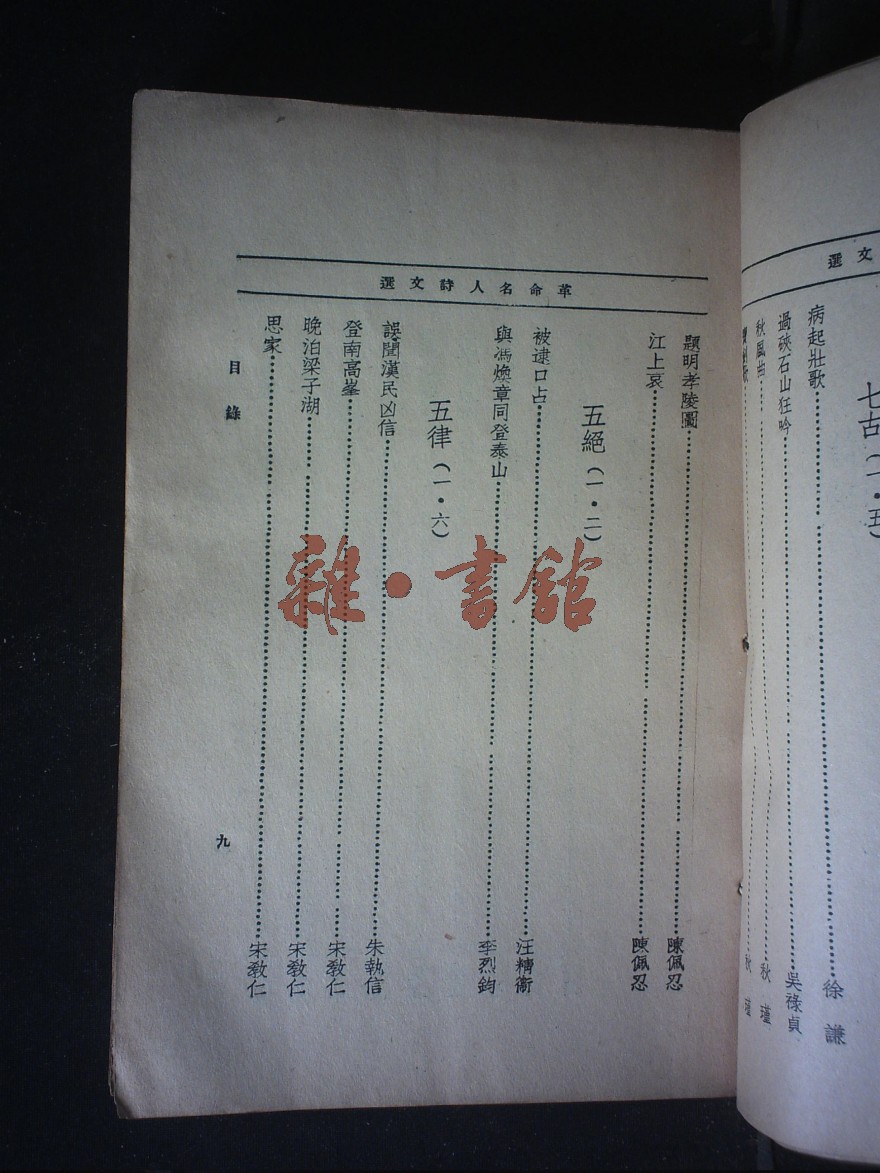 選文
七古（一・五）
病起壯歌 徐謙
過硤石山狂吟 吳祿貞
秋風曲 秋瑾
秋瑾
革命名人詩文選
題明孝陵圖 陳佩忍
江上哀 陳佩忍
五絕（一・二）
被逮口占 汪精衞
與馮煥章同登泰山 李烈鈞
五律（一・六）
誤聞漢民凶信 朱執信
登南高峯 宋敎仁
晚泊梁子湖 宋敎仁
思家 宋敎仁
目錄
九
雜・書館